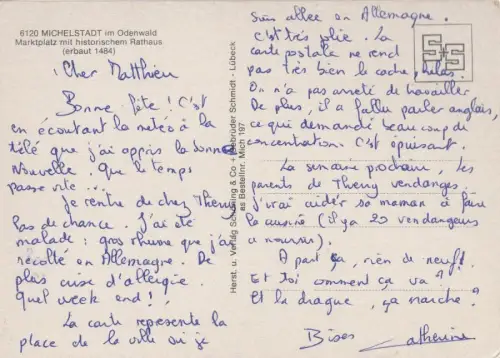 6120 MICHELSTADT im Odenwald
Marktplatz mit historischem Rathaus
(erbaut 1484)
Cher Matthieu
Bonne fête ! C'est
en écoutant la météo à la
télé que j'ai appris la bonne
nouvelle. Que le temps
passe vite...
Je rentre de chez Thierry
Pas de chance. J'ai été
malade : gros rhume que j'ai
récolté en Allemagne. De
plus crise d'allergie.
Quel week end !
La carte représente la
place de la ville où je
Herst. u. Verlag Schöning & Co + Gebrüder Schmidt - Lübeck
Bestellnr. Mich 197
S+S
suis allée en Allemagne.
C'est très joli. La
carte postale ne rend
pas très bien la coche, hélas.
On n'a pas arrêté de travailler
De plus, il a fallu parler anglais,
ce qui demande beaucoup de
concentration. C'est épuisant.
La semaine prochaine, les
parents de Thierry vendangent.
J'irai aider sa maman à faire
la cuisine (il y a 20 vendangeurs
à nourrir).
A part ça, rien de neuf.
Et toi comment ça va ?
Et la drague, ça marche ?
Bises Catherine